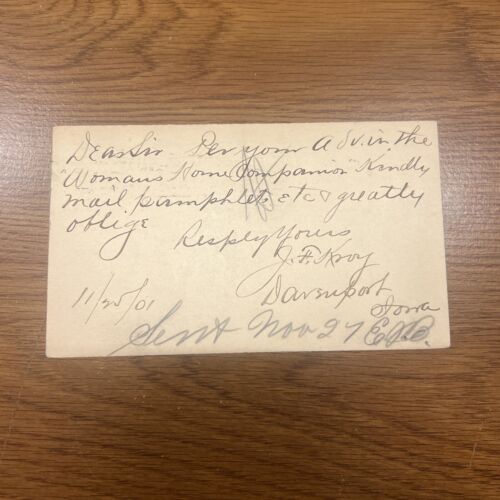 Dear Sir Per your Adv. in the
"Womans Home Companion" Kindly
mail pamphlet, etc & greatly
oblige
Resply Yours
J. F. Kroy
Davenport
Iowa
11/25/01
Sent Nov 27